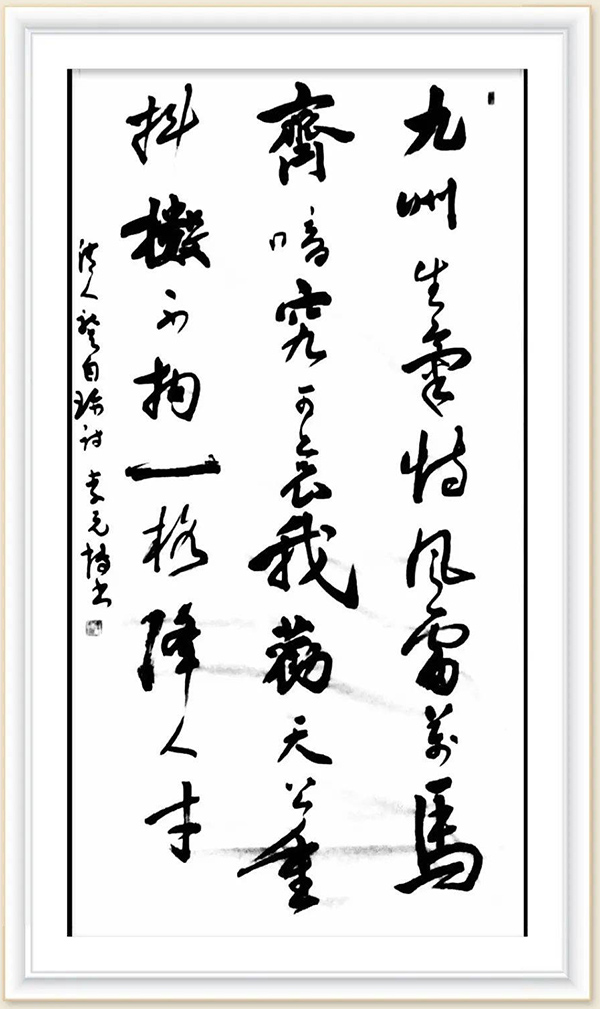 九洲生氣恃风雷萬馬
齊喑究可哀我勸天公重
抖擻不拘一格降人才
清人龔自珍诗 李元博书